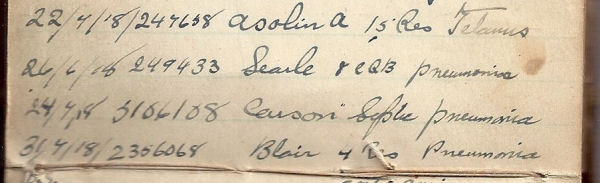 22/7/18/247638 Asolin A 15 Res Tetanus
26/6/18 249433 Searle 8 CQB pneumonia
24/7/18 3106108 Carson Septic pneumonia
31/7/18/2356068 Blair 4 Res Pneumonia